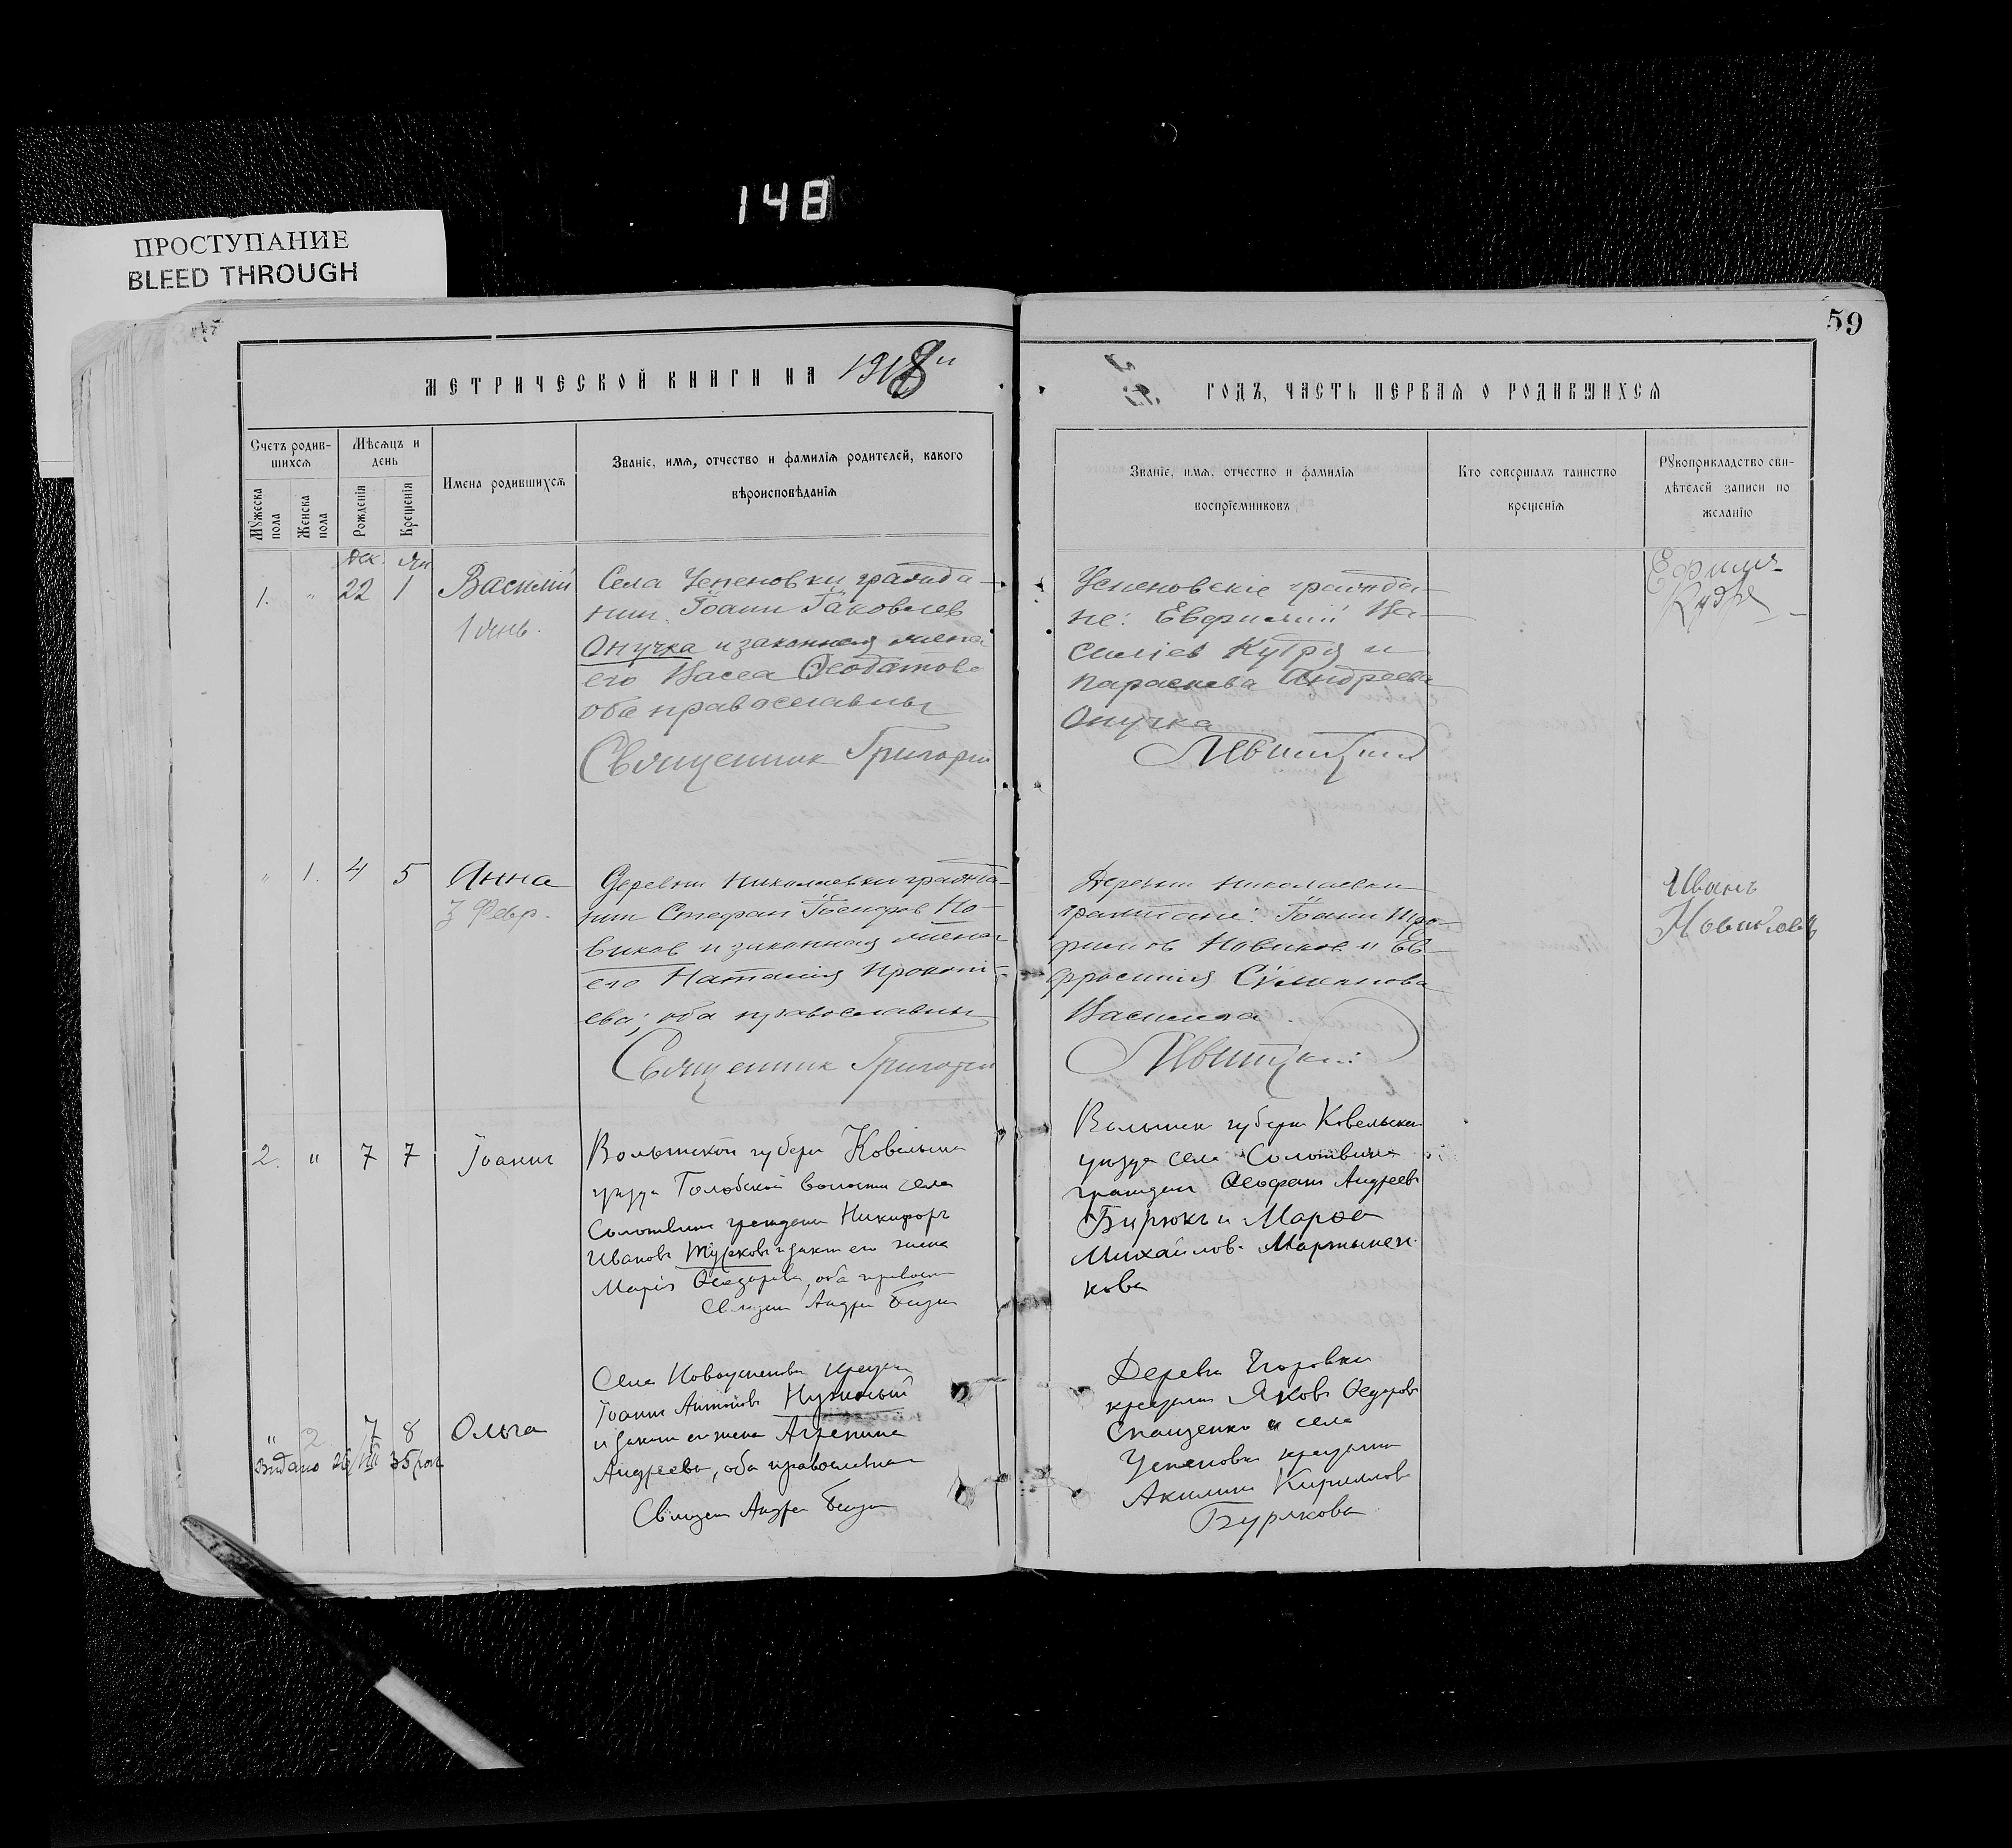 148
ПРОСТУПАНИЕ
BLEED THROUGH
59
МЕТРИЧЕСКОЙ КНИГИ НА 1918
ГОДЪ, ЧАСТЬ ПЕРВАЯ О РОДИВШИХСЯ
Счетъ родив-
шихся
Мѣсяцъ и
день
Имена родившихся
Званіе, имя, отчество и фамилія родителей, какого
вѣроисповѣданія
Мужеска
пола
Женска
пола
Рожденія
Крещенія
Званіе, имя, отчество и фамилія
воспріемниковъ
Кто совершалъ таинство
крещенія
Рукоприкладство сви-
дѣтелей записи по
желанію
Дек. Ян
1. " 22 1 Василий
1 янв.
Села Успеновки гражда-
нин Іоанн Іаковлев
Онучка и законная жена
его Васса Ѳеодотова
оба православны
Священник Григорий
Успеновскіе гражда-
не: Евфимий Ва-
силіев Кудря и
Параскева Андреева
Онучка
Левитский
Кудря
" 1. 4 5 Анна
3 Февр.
Деревни Николаевки гражда-
нин Стефан Но-
виков и законная жена
его Наталия Прокопі-
ева; оба православны
Священник Григорий
Деревни Николаевки
граждане: Іоанн
Новиков и Ев-
фросиния Сумеонова
Левитский
Иванъ
Новиков
2. " 7 7 Іоаннъ
Волынской губерн Ковельска
уезда Голобской волости села
Солотвина граждан Никифоръ
Иванов и закон его жена
Марія оба правосл
Священ Андрей
Волынск губерн Ковельска
уезда села Солотвина
граждан Ѳеофан Андреев
Бирюкъ и Марѳа
Михайлов Мартынен
кова
" 2 7 8 Ольга
Видано 26/III 35 року
Села Новоуспеновки
Іоанн Антонов Нужный
и закон его жена Агрепина
Андреева, оба православна
Священ Андрей
Деревн Егоровки
крестьян Яков Ѳедоров
и села
Успеновки крестьянка
Акилина Кириллов
Бурякова